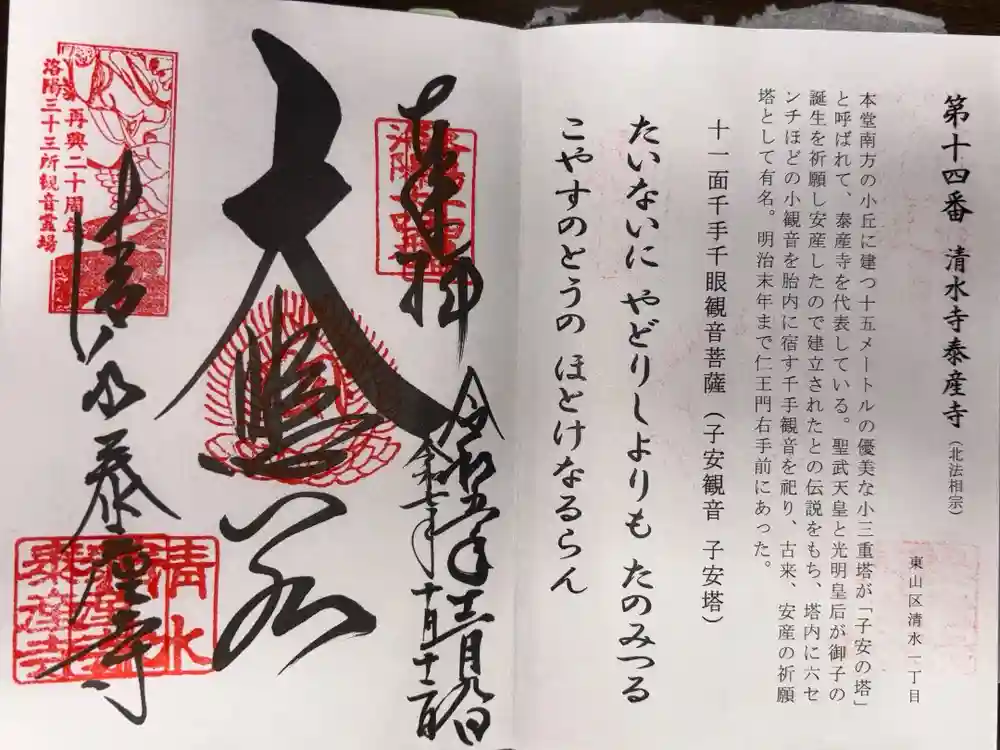 第十四番 清水寺泰産寺（北法相宗）
東山区清水一丁目
本堂南方の小丘に建つ十五メートルの優美な小三重塔が「子安の塔」
と呼ばれて、泰産寺を代表している。聖武天皇と光明皇后が御子の
誕生を祈願し安産したので建立されたとの伝説をもち、塔内に六セ
ンチほどの小観音を胎内に宿す千手観音を祀り、古来、安産の祈願
塔として有名。明治末年まで仁王門右手前にあった。
十一面千手千眼観音菩薩（子安観音 子安塔）
たいないに やどりしよりも たのみつる
こやすのとうの ほとけなるらん
奉拝
令和五年十二月九日
大悲閣
清水泰産寺
再興二十周年
洛陽三十三所観音霊場
清水
泰産寺